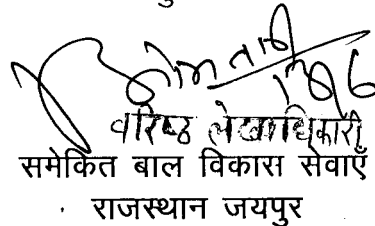 वरिष्ठ लेखाधिकारी
समेकित बाल विकास सेवाएँ
राजस्थान जयपुर